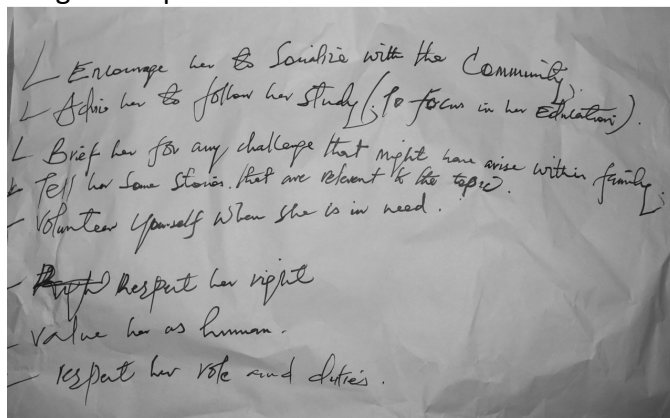 Encourage her to Socialize with the Community.
Advice her to follow her study (To focus in her Education).
Brief her for any challenge that might have arise within family.
Tell her Some Stories that are relevant to the topic.
Volunteer yourself when she is in need.
Respect her right
Value her as human.
respect her role and duties.